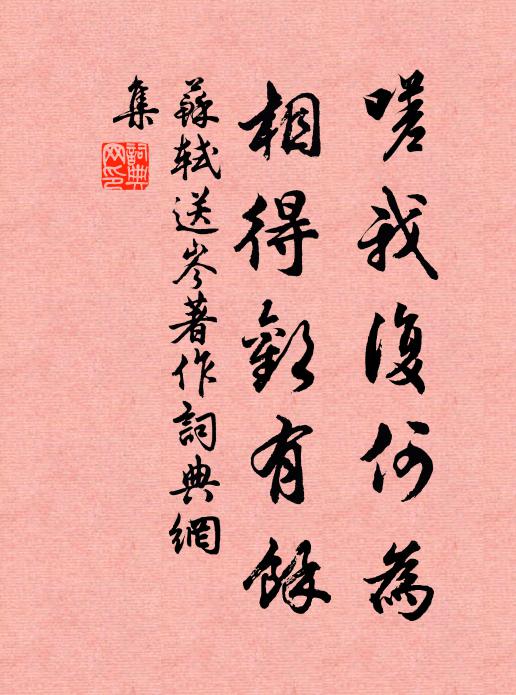 嗟我復何為
相得歡有餘
蘇軾送岑著作詞典網
集
詞典
网印